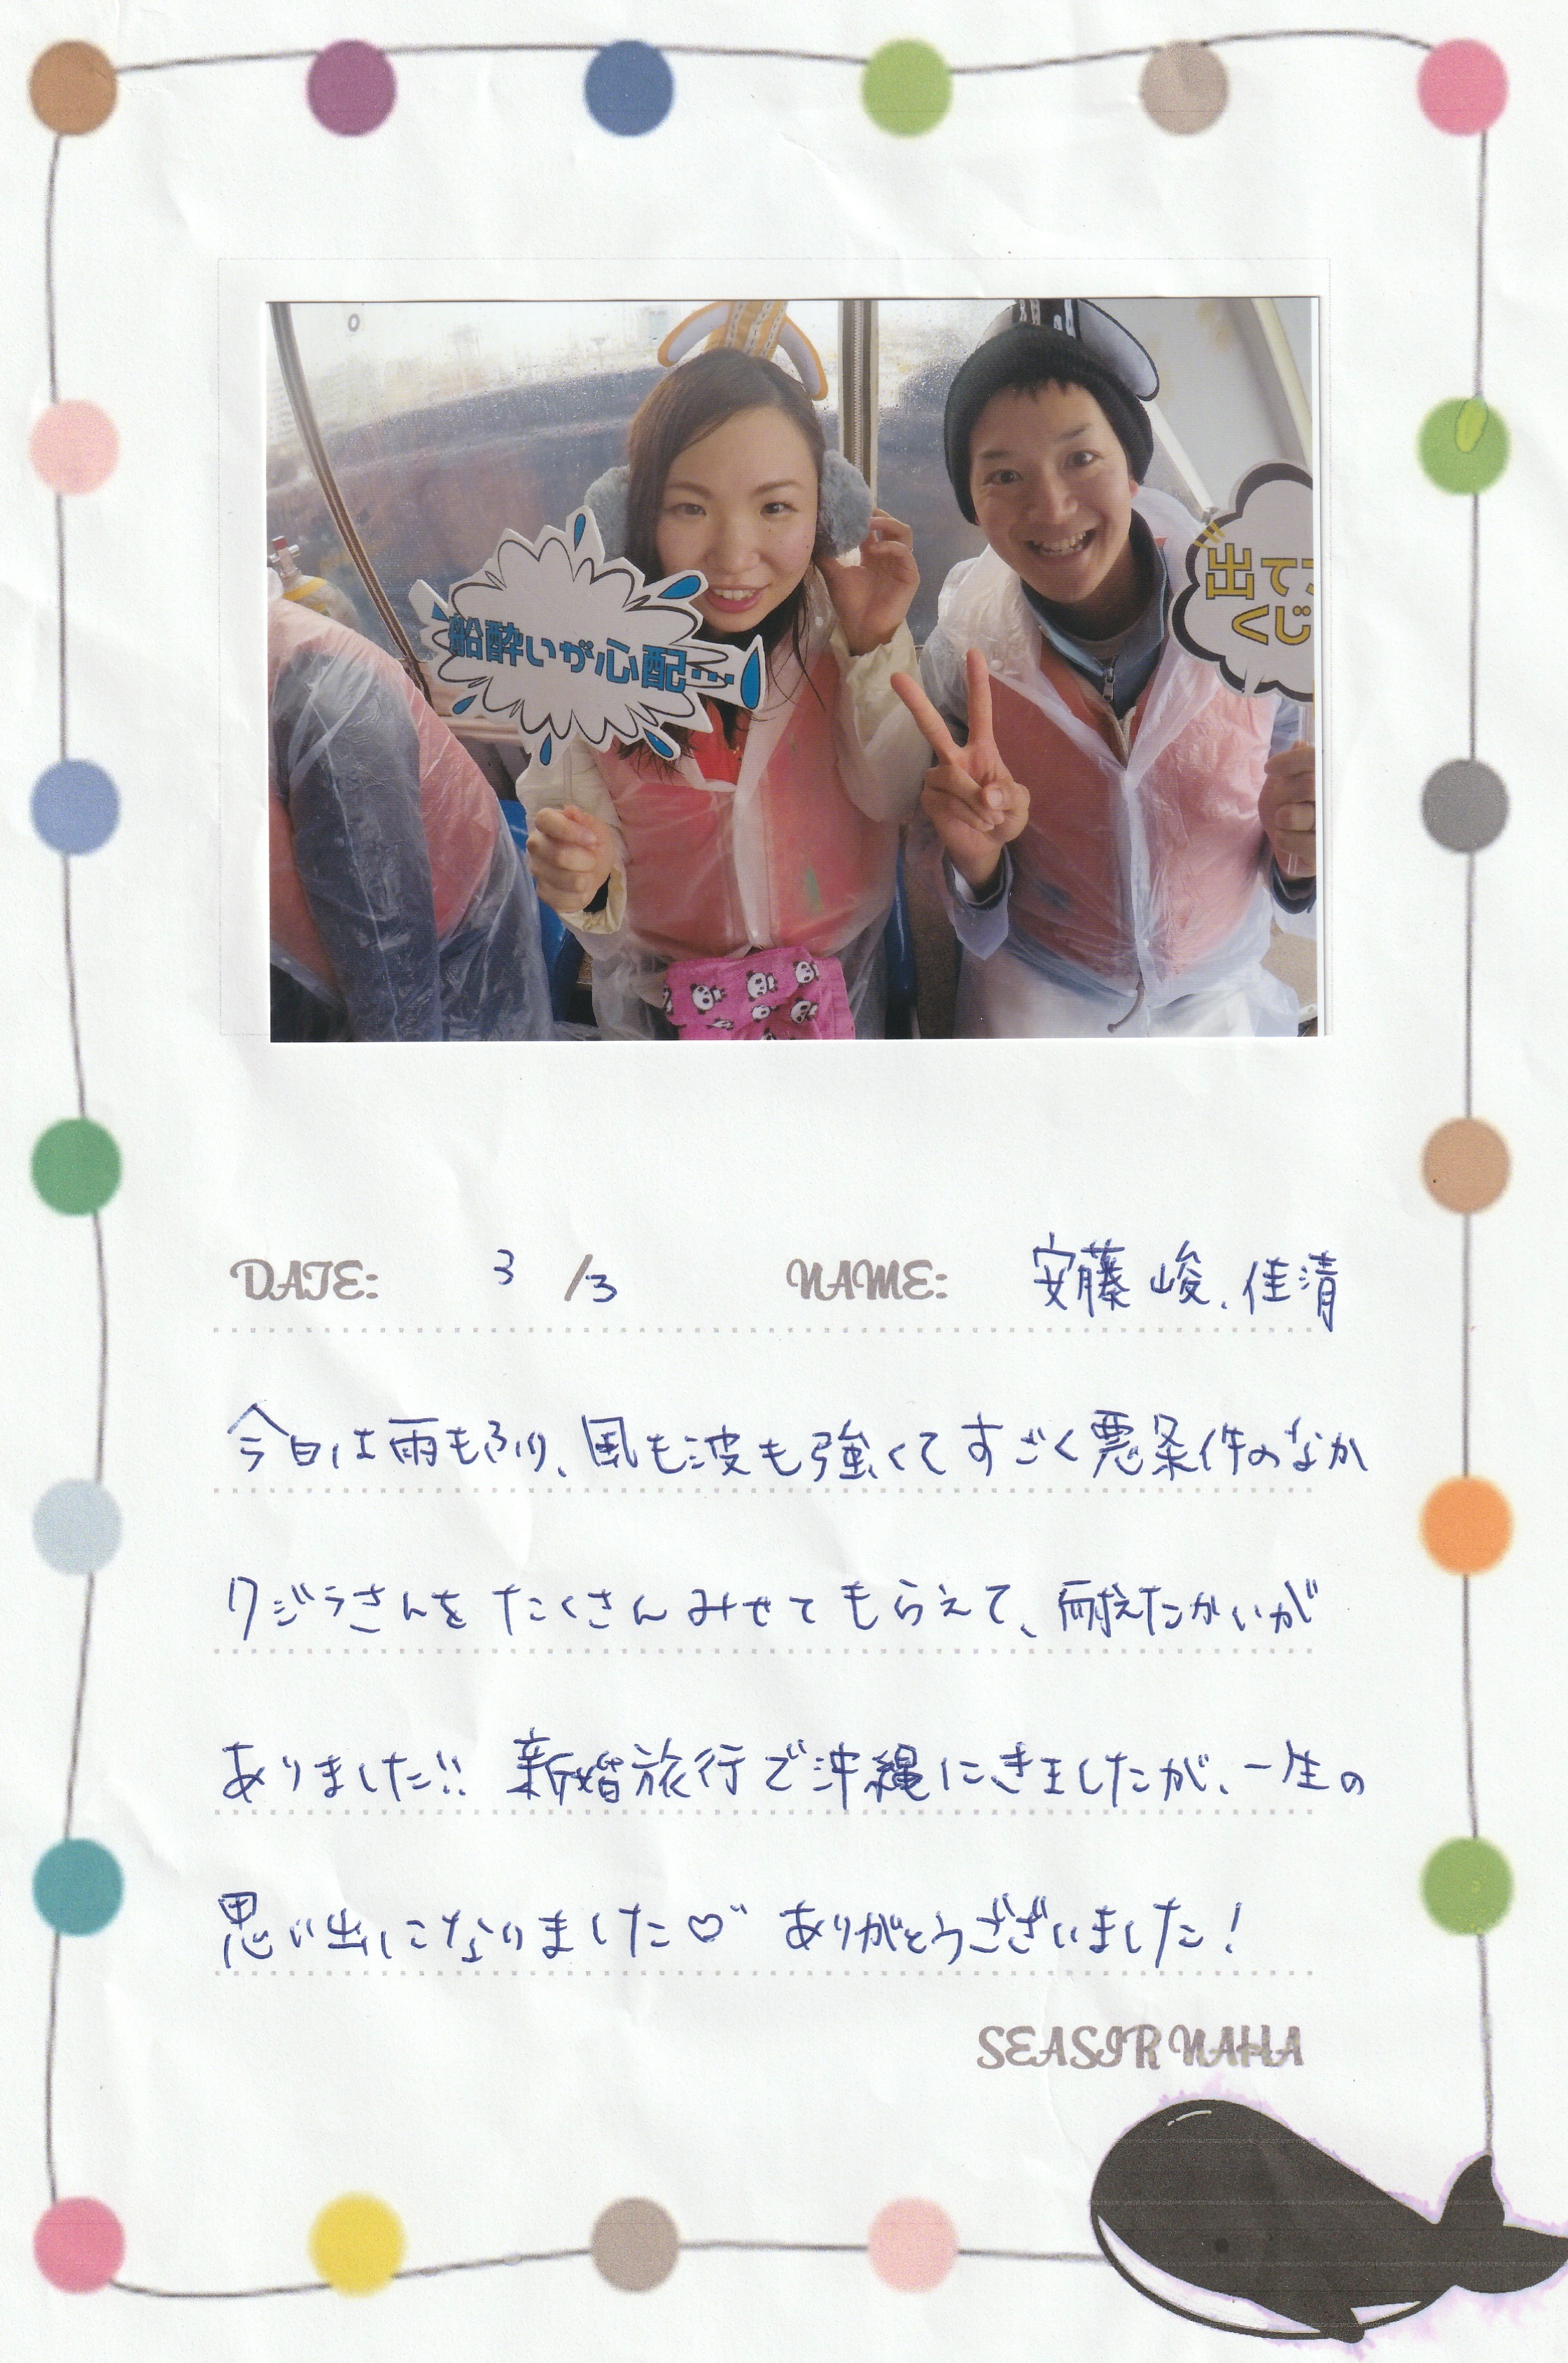 船酔いが心配…
出て
くじ
DATE: 3/3 NAME: 安藤 峻、佳清
今日は雨もふり、風も波も強くてすごく悪条件のなか
クジラさんをたくさんみせてもらえて、耐えたかいが
ありました!! 新婚旅行で沖縄にきましたが、一生の
思い出になりました♡ ありがとうございました!
SEASIR NAHA